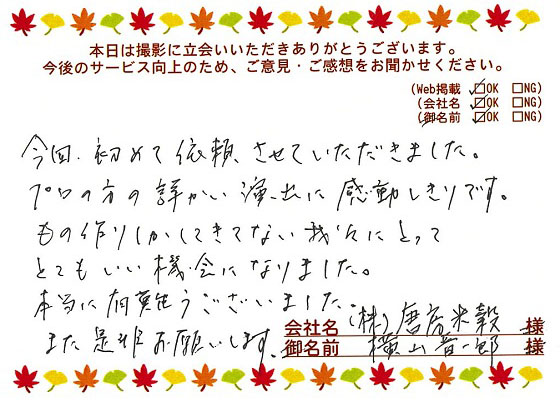 本日は撮影に立会いいただきありがとうございます。
今後のサービス向上のため、ご意見・ご感想をお聞かせください。
(Web掲載 ☑OK □NG)
(会社名 ☑OK □NG)
(御名前 ☑OK □NG)
今回、初めて依頼させていただきました。
プロの方の詳かい演出に感動しきりです。
もの作りしかしてきてない我々にとって
とてもいい機会になりました。
本当に有難うございました。
また是非お願いします。
会社名 (株)唐房米穀 様
御名前 横山 一郎 様